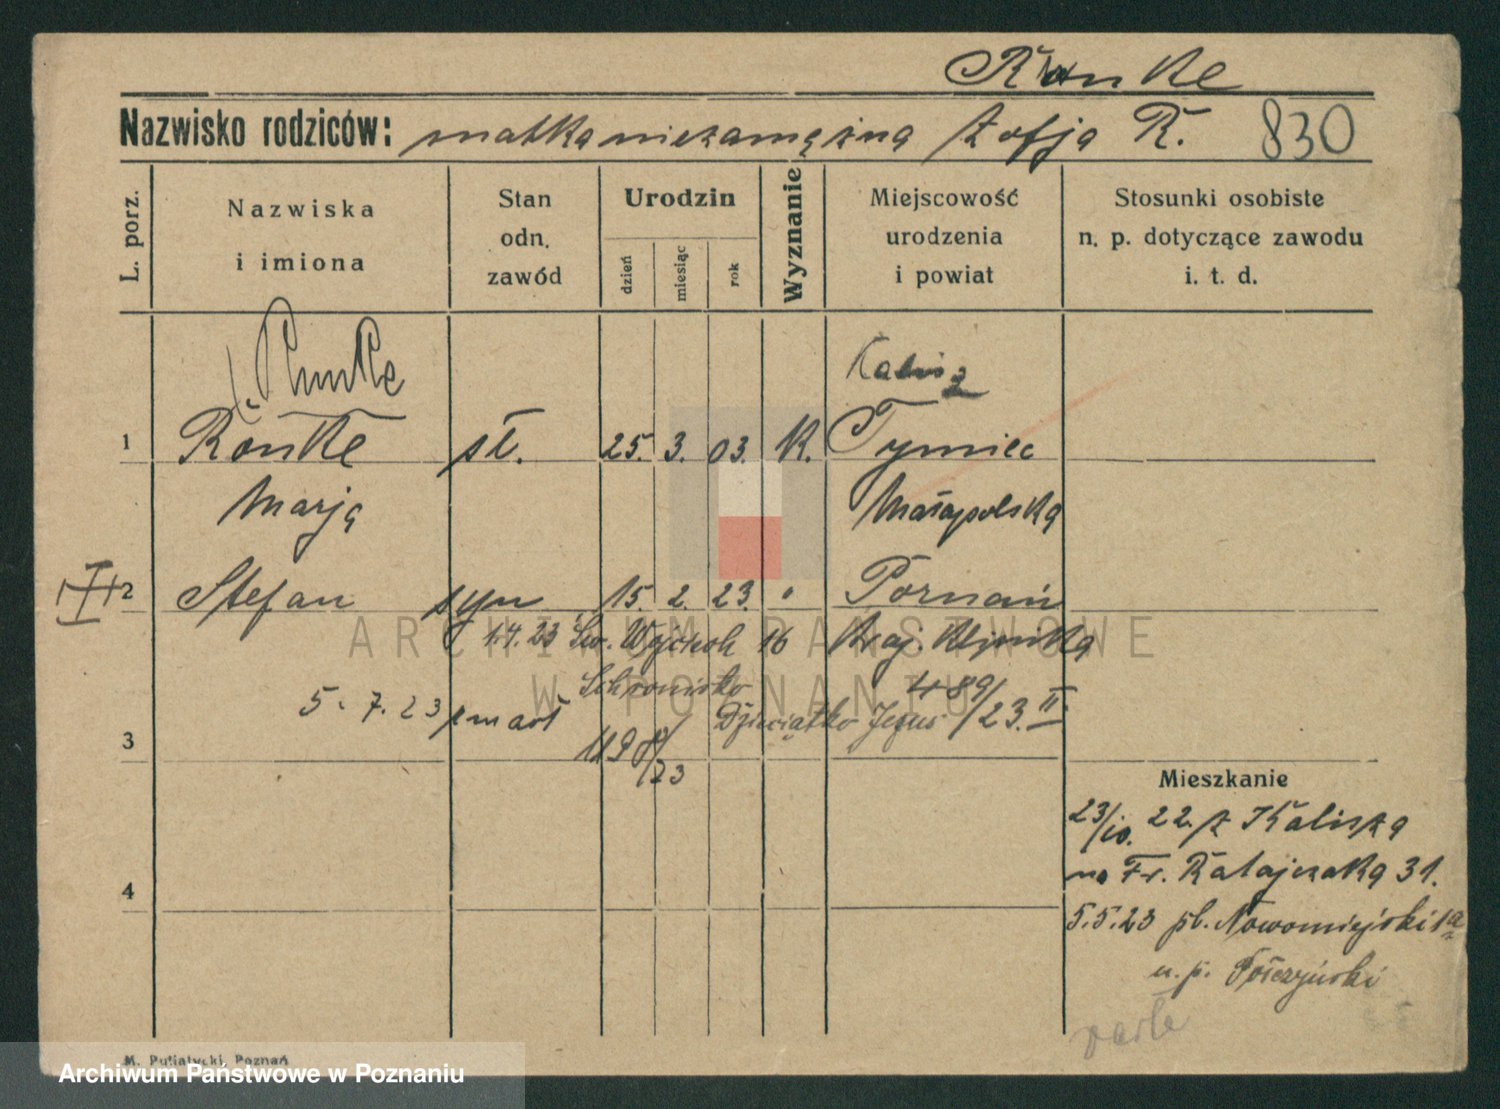 Ronke
Nazwisko rodziców: matka niezamężna Zofja R. 830
L. porz.
Nazwiska i imiona
Stan odn. zawód
Urodzin
dzień miesiąc rok
Wyznanie
Miejscowość urodzenia i powiat
Stosunki osobiste n. p. dotyczące zawodu i. t. d.
Runke
Kalisz
1 Ronke sł. 25. 3. 03. K. Tymiec
Marja Małapolska
2 Stefan syn 15. 2. 23. " Poznań
1.4. 23 Św. Wojciech 16 Kraj. Klinika
Schronisko 489/23. II.
5. 7. 23 zmarł Dzieciątko Jezus
1198/23
3
Mieszkanie
23/10. 22. z Kalisza
na Fr. Ratajczaka 31.
4
5.5.23 pl. Nowomiejski 1a
u. p.
ARCHIWUM PAŃSTWOWE
W POZNANIU
M. Putiatycki, Poznań
Archiwum Państwowe w Poznaniu